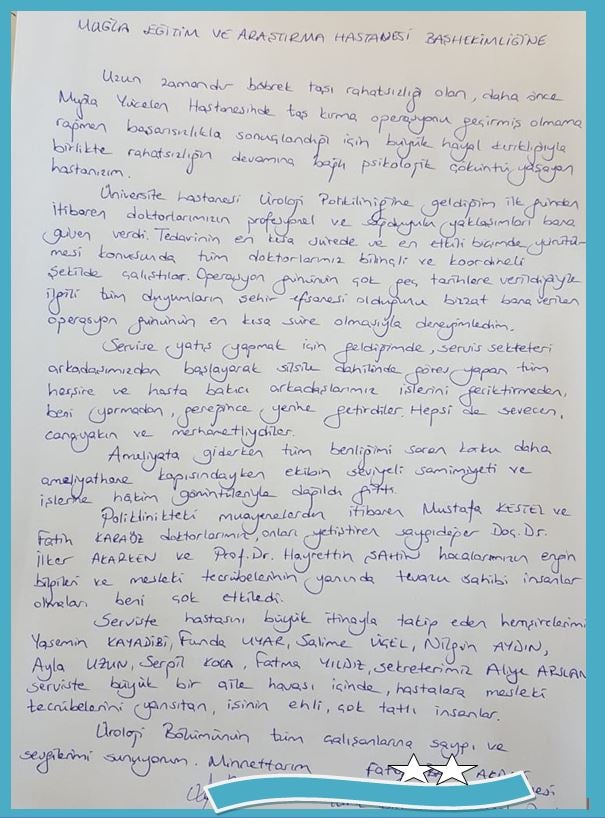 MUĞLA EĞİTİM VE ARAŞTIRMA HASTANESİ BAŞHEKİMLİĞİNE
Uzun zamandır böbrek taşı rahatsızlığı olan, daha önce
Muğla Yücelen Hastanesinde taş kırma operasyonu geçirmiş olmama
rağmen başarısızlıkla sonuçlandığı için büyük hayal kırıklığıyla
birlikte rahatsızlığın devamına bağlı psikolojik çöküntü yaşayan
hastanızım.
Üniversite hastanesi Üroloji Polikliniğine geldiğim ilk günden
itibaren doktorlarımızın profesyonel ve sağduyulu yaklaşımları bana
güven verdi. Tedavinin en kısa sürede ve en etkili biçimde yürütül-
mesi konusunda tüm doktorlarımız bilinçli ve koordineli
şekilde çalıştılar. Operasyon gününün çok geç tarihlere verildiğiyle
ilgili tüm duyumların şehir efsanesi olduğunu bizzat bana verilen
operasyon gününün en kısa süre olmasıyla deneyimledim.
Servise yatış yapmak için geldiğimde, servis sekreteri
arkadaşımızdan başlayarak silsile dahilinde görev yapan tüm
hemşire ve hasta bakıcı arkadaşlarımız işlerini geciktirmeden,
beni yormadan, gereğince yerine getirdiler. Hepsi de sevecen,
canayakın ve merhametliydiler.
Ameliyata giderken tüm benliğimi saran korku daha
ameliyathane kapısındayken ekibin seviyeli samimiyeti ve
işlerine hakim görüntüleriyle dağıldı gitti.
Poliklinikteki muayenelerden itibaren Mustafa KESTEL ve
Fatih KARAÖZ doktorlarımız, onları yetiştiren saygıdeğer Doç. Dr.
İlker AKARKEN ve Prof. Dr. Hayrettin ŞAHİN hocalarımızın engin
bilgileri ve mesleki tecrübelerinin yanında tevazu sahibi insanlar
olmaları beni çok etkiledi.
Serviste hastasını büyük itinayla takip eden hemşirelerimiz
Yasemin KAYADİBİ, Funda UYAR, Salime ÜÇEL, Nilgün AYDIN,
Ayla UZUN, Serpil KOCA, Fatma YILDIZ, sekreterimiz Aliye ARSLAN
serviste büyük bir aile havası içinde, hastalara mesleki
tecrübelerini yansıtan, işinin ehli, çok tatlı insanlar.
Üroloji Bölümünün tüm çalışanlarına saygı ve
sevgilerimi sunuyorum. Minnettarım